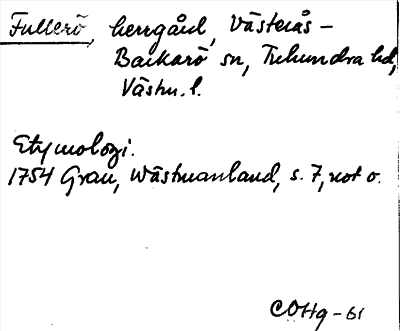 Fullerö, herrgård, Västerås-
Barkarö sn, Tuhundra hd,
Västm. l.
Etymologi.
1754 Grau, Wästmanland, s. 7, not o.
COHg-61